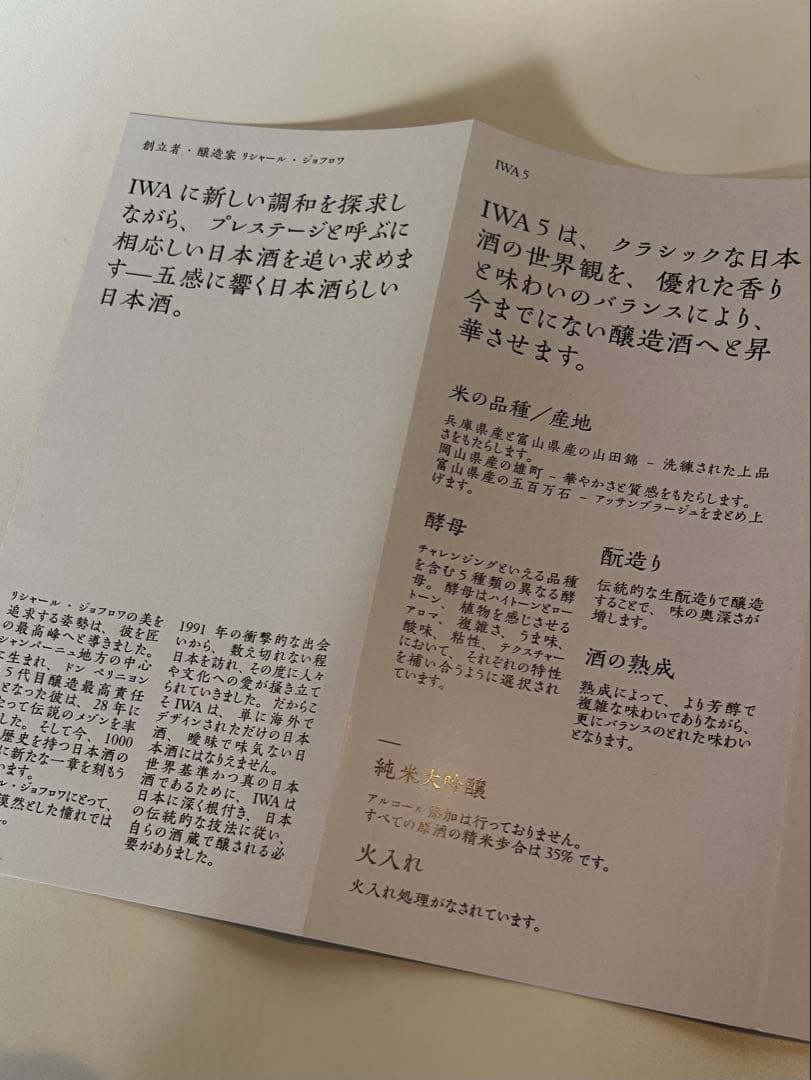 創立者・醸造家 リシャール・ジョフロワ
IWA に新しい調和を探求し
ながら、プレステージと呼ぶに
相応しい日本酒を追い求めま
す—五感に響く日本酒らしい
日本酒。
リシャール・ジョフロワの美を
追求する姿勢は、彼を匠
の最高峰へと導きました。
シャンパーニュ地方の中心
に生まれ、ドン ペリニヨン
5 代目醸造最高責任
となった彼は、28 年に
たって伝説のメゾンを率
した。そして今、1000
歴史を持つ日本酒の
に新たな一章を刻もう
います。
ル・ジョフロワにとって、
漠然とした憧れでは
1991 年の衝撃的な出会
いから、数え切れない程
日本を訪れ、その度に人々
や文化への愛が掻き立て
られていきました。だからこ
そ IWA は、単に海外で
デザインされただけの日本
酒、曖昧で味気ない日
本酒にはなりえません。
世界基準かつ真の日本
酒であるために、IWA は
日本に深く根付き、日本
の伝統的な技法に従い、
自らの酒蔵で醸される必
要がありました。
IWA 5
IWA 5 は、クラシックな日本
酒の世界観を、優れた香り
と味わいのバランスにより、
今までにない醸造酒へと昇
華させます。
米の品種／産地
兵庫県産と富山県産の山田錦 – 洗練された上品
さをもたらします。
岡山県産の雄町 – 華やかさと質感をもたらします。
富山県産の五百万石 – アッサンブラージュをまとめ上
げます。
酵母
チャレンジングといえる品種
を含む 5 種類の異なる酵
母。酵母はハイトーンとロー
トーン、植物を感じさせる
アロマ、複雑さ、うま味、
酸味、粘性、テクスチャー
において、それぞれの特性
を補い合うように選択され
ています。
酛造り
伝統的な生酛造りで醸造
することで、味の奥深さが
増します。
酒の熟成
熟成によって、より芳醇で
複雑な味わいでありながら、
更にバランスのとれた味わい
となります。
—
純米大吟醸
アルコール添加は行っておりません。
すべての原酒の精米歩合は 35% です。
火入れ
火入れ処理がなされています。